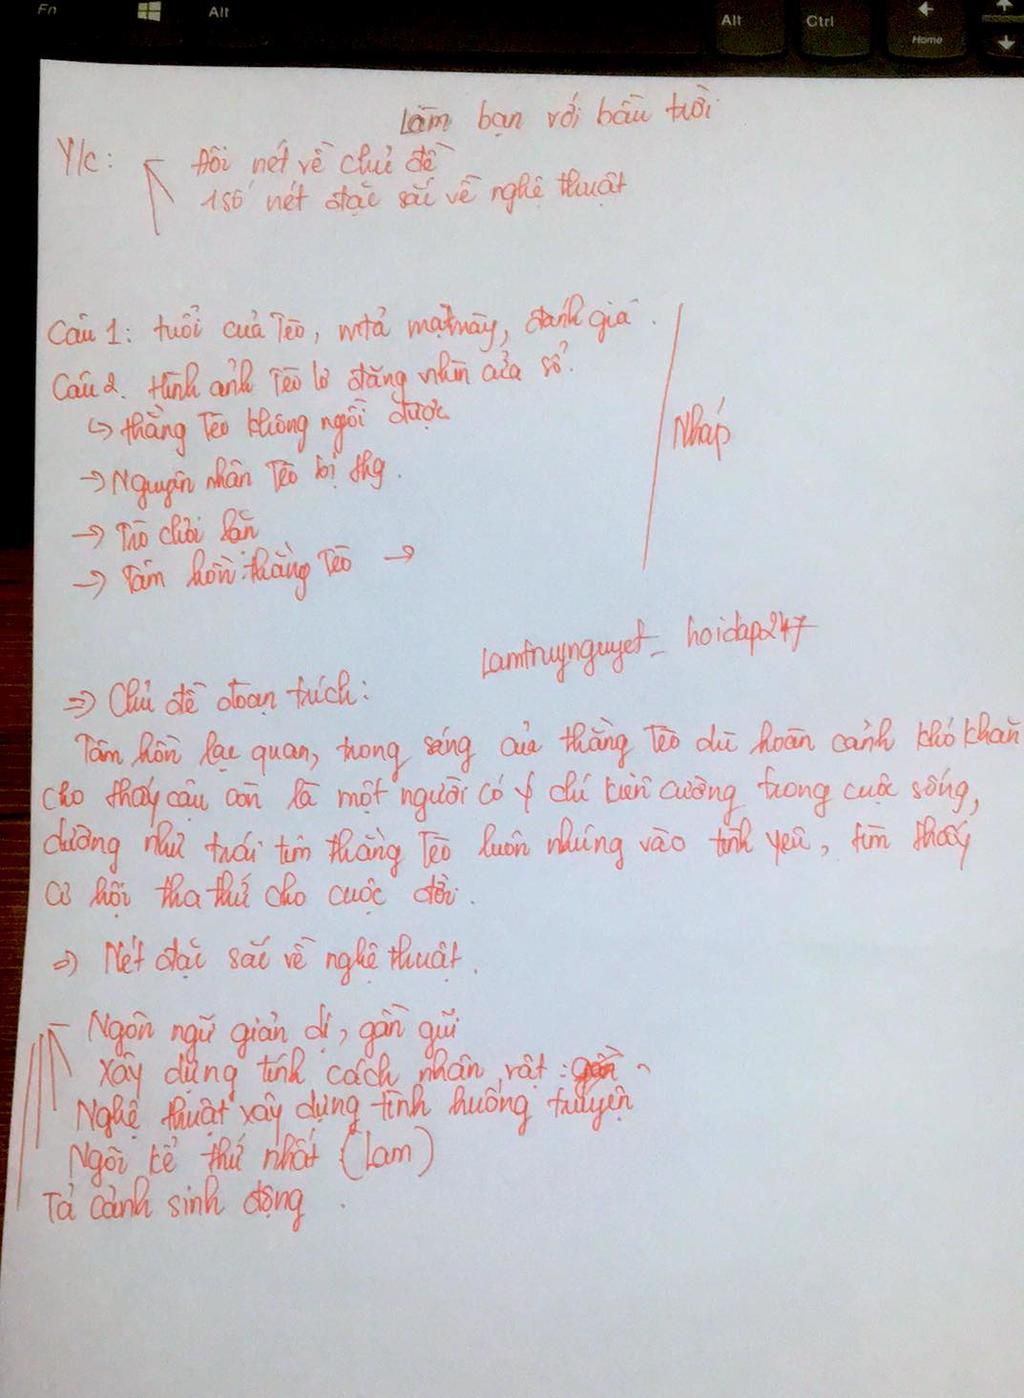 Fn Alt Alt Ctrl Home
Làm bạn với bầu trời
Y/c: Đôi nét về chủ đề
1 số nét đặc sắc về nghệ thuật
Câu 1: tuổi của Tèo, mtả mặt mày, đánh giá.
Câu 2. Hình ảnh Tèo lơ đãng nhìn cửa sổ.
↳ thằng Tèo không ngồi được
Nháp
→ Nguyên nhân Tèo bị thg.
→ Trò chơi lăn
→ Tâm hồn thằng Tèo →
lamtruynguyet_ hoidap247
⇒ Chủ đề đoạn trích:
Tâm hồn lạc quan, trong sáng của thằng Tèo dù hoàn cảnh khó khăn
cho thấy cậu còn là một người có ý chí kiên cường trong cuộc sống,
dường như trái tim thằng Tèo luôn nhúng vào tình yêu, tìm thấy
cơ hội tha thứ cho cuộc đời.
⇒ Nét đặc sắc về nghệ thuật.
Ngôn ngữ giản dị, gần gũi
Xây dựng tính cách nhân vật:
Nghệ thuật xây dựng tình huống truyện
Ngôi kể thứ nhất (Lam)
Tả cảnh sinh động.